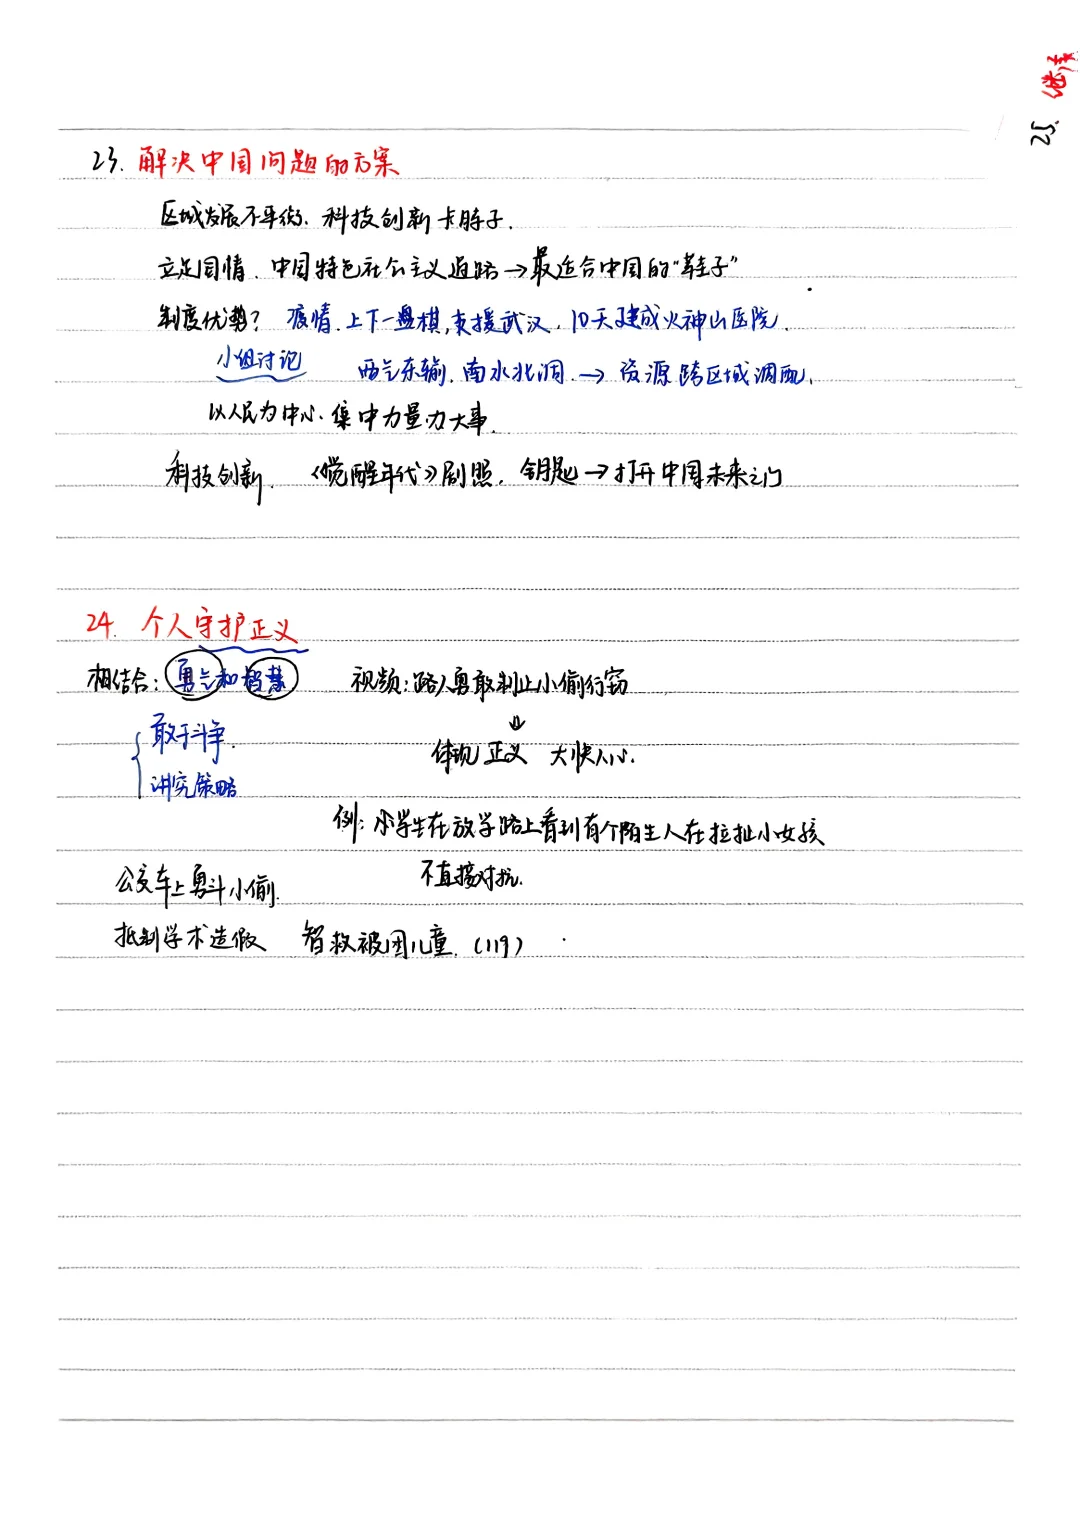 23. 解决中国问题的方案
区域发展不平衡、科技创新卡脖子.
立足国情、中国特色社会主义道路→最适合中国的“鞋子”
制度优势? 疫情.上下一盘棋,支援武汉.10天建成火神山医院.
小组讨论 西气东输.南水北调.→资源跨区域调配.
以人民为中心、集中力量办大事.
科技创新. 《觉醒年代》剧照. 钥匙→打开中国未来之门
24. 个人守护正义
相结合: 勇气和智慧 视频:路人勇敢制止小偷行窃
敢于斗争. ⇓
体现正义 大快人心.
讲究策略
例:小学生在放学路上看到有个陌生人在拉扯小女孩
公交车上勇斗小偷. 不直接对抗.
抵制学术造假 智救被困儿童.(119)
25.